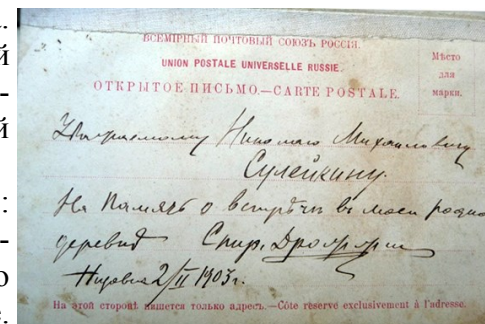 ВСЕМІРНЫЙ ПОЧТОВЫЙ СОЮЗЪ РОССІЯ.
UNION POSTALE UNIVERSELLE RUSSIE.
ОТКРЫТОЕ ПИСЬМО.—CARTE POSTALE.
Мѣсто
для
марки.
Уважаемому Николаю Михайловичу
Сулейкину.
На память о встрѣчи въ моей
деревнѣ Спир. Дрожжин
Низовка 2/II 1903 г.
На этой сторонѣ пишется только адресъ.—Côté réservé exclusivement à l'adresse.